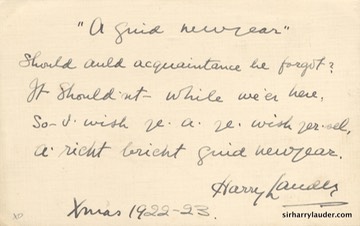 "A guid newyear"
Should auld acquaintance be forgot?
It should'nt - while we'er here.
So. I. wish ye. a. ye. wish yer-sel,
a. richt bricht guid newyear.
Harry Lauder
Xmas 1922-23.
sirharrylauder.com